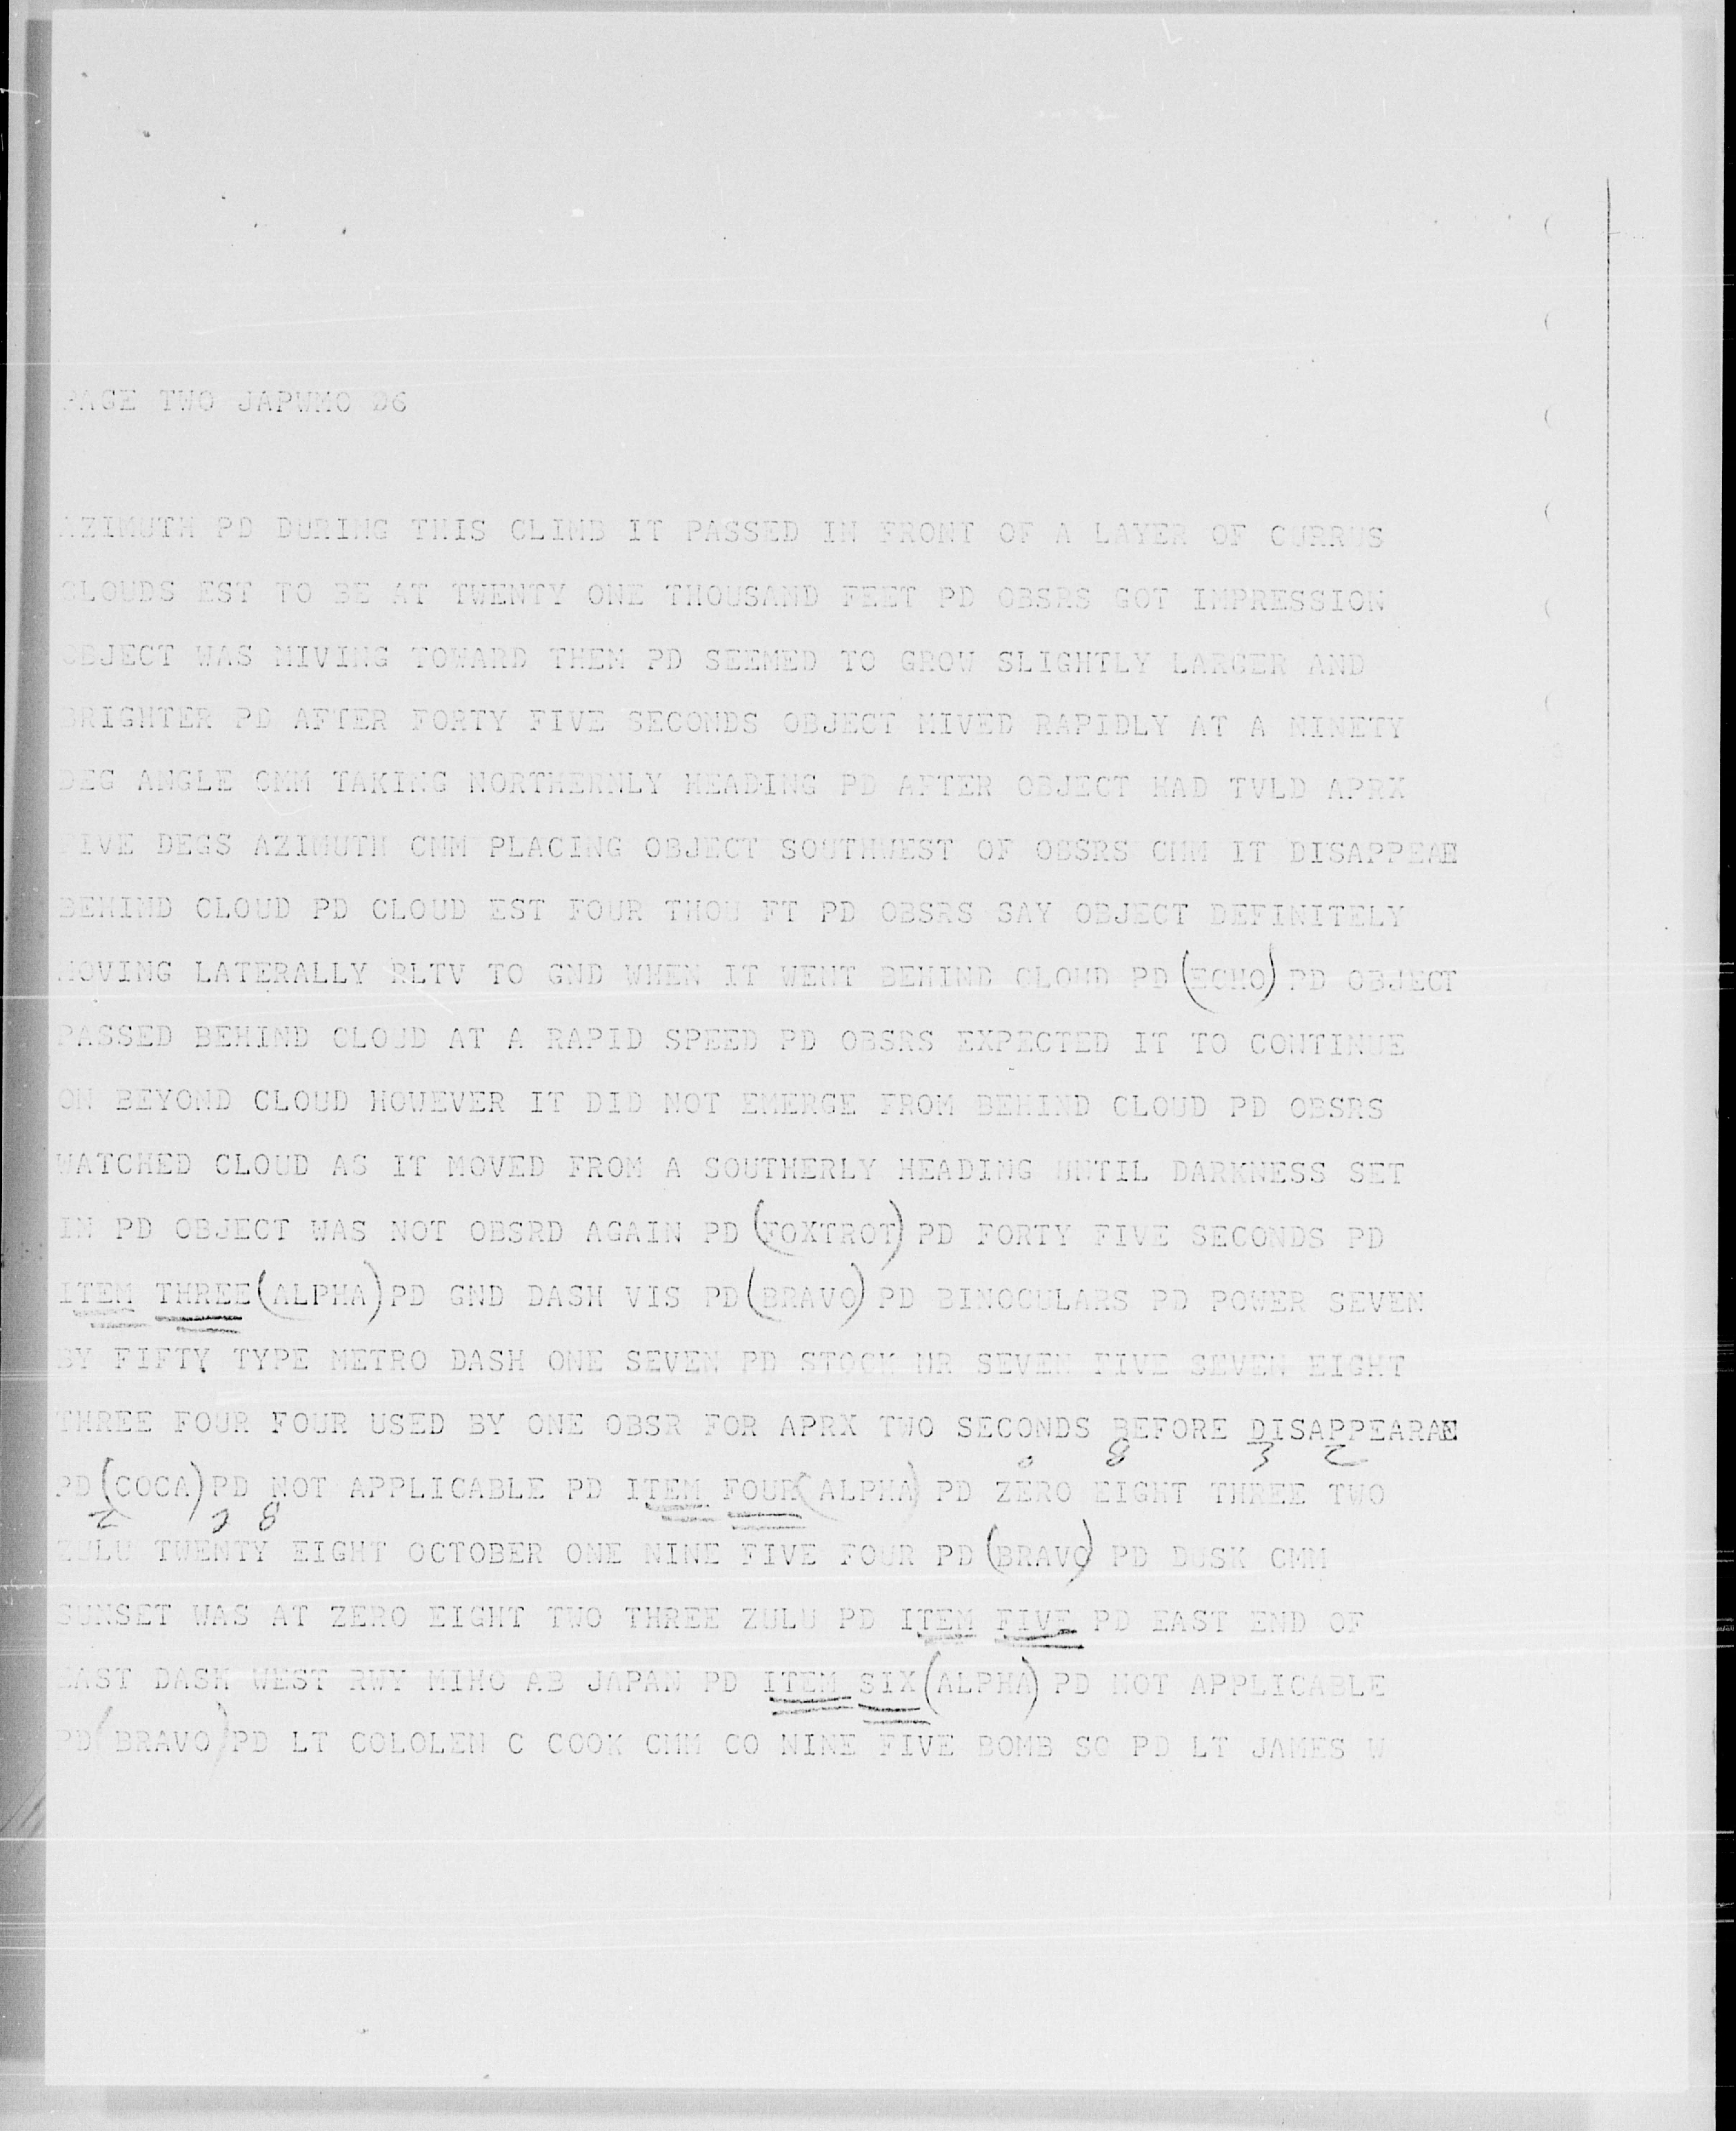 PAGE TWO JAPWMO D6
AZIMUTH PD DURING THIS CLIMB IT PASSED IN FRONT OF A LAYER OF CURRUS
CLOUDS EST TO BE AT TWENTY ONE THOUSAND FEET PD OBSRS GOT IMPRESSION
OBJECT WAS MIVING TOWARD THEM PD SEEMED TO GROW SLIGHTLY LARGER AND
BRIGHTER PD AFTER FORTY FIVE SECONDS OBJECT MIVED RAPIDLY AT A NINETY
DEG ANGLE CMM TAKING NORTHERNLY HEADING PD AFTER OBJECT HAD TVLD APRX
FIVE DEGS AZIMUTH CMM PLACING OBJECT SOUTHWEST OF OBSRS CMM IT DISAPPEAE
BEHIND CLOUD PD CLOUD EST FOUR THOU FT PD OBSRS SAY OBJECT DEFINITELY
MOVING LATERALLY RLTV TO GND WHEN IT WENT BEHIND CLOUD PD (ECHO) PD OBJECT
PASSED BEHIND CLOUD AT A RAPID SPEED PD OBSRS EXPECTED IT TO CONTINUE
ON BEYOND CLOUD HOWEVER IT DID NOT EMERGE FROM BEHIND CLOUD PD OBSRS
WATCHED CLOUD AS IT MOVED FROM A SOUTHERLY HEADING UNTIL DARKNESS SET
IN PD OBJECT WAS NOT OBSRD AGAIN PD (FOXTROT) PD FORTY FIVE SECONDS PD
ITEM THREE (ALPHA) PD GND DASH VIS PD (BRAVO) PD BINOCULARS PD POWER SEVEN
BY FIFTY TYPE METRO DASH ONE SEVEN PD STOCK NR SEVEN FIVE SEVEN EIGHT
THREE FOUR FOUR USED BY ONE OBSR FOR APRX TWO SECONDS BEFORE DISAPPEARAE
0 8 3 2
PD (COCA) PD NOT APPLICABLE PD ITEM FOUR (ALPHA) PD ZERO EIGHT THREE TWO
Z 28
ZULU TWENTY EIGHT OCTOBER ONE NINE FIVE FOUR PD (BRAVO) PD DUSK CMM
SUNSET WAS AT ZERO EIGHT TWO THREE ZULU PD ITEM FIVE PD EAST END OF
EAST DASH WEST RWY MIHO AB JAPAN PD ITEM SIX (ALPHA) PD NOT APPLICABLE
PD (BRAVO) PD LT COLOLEN C COOK CMM CO NINE FIVE BOMB SQ PD LT JAMES W